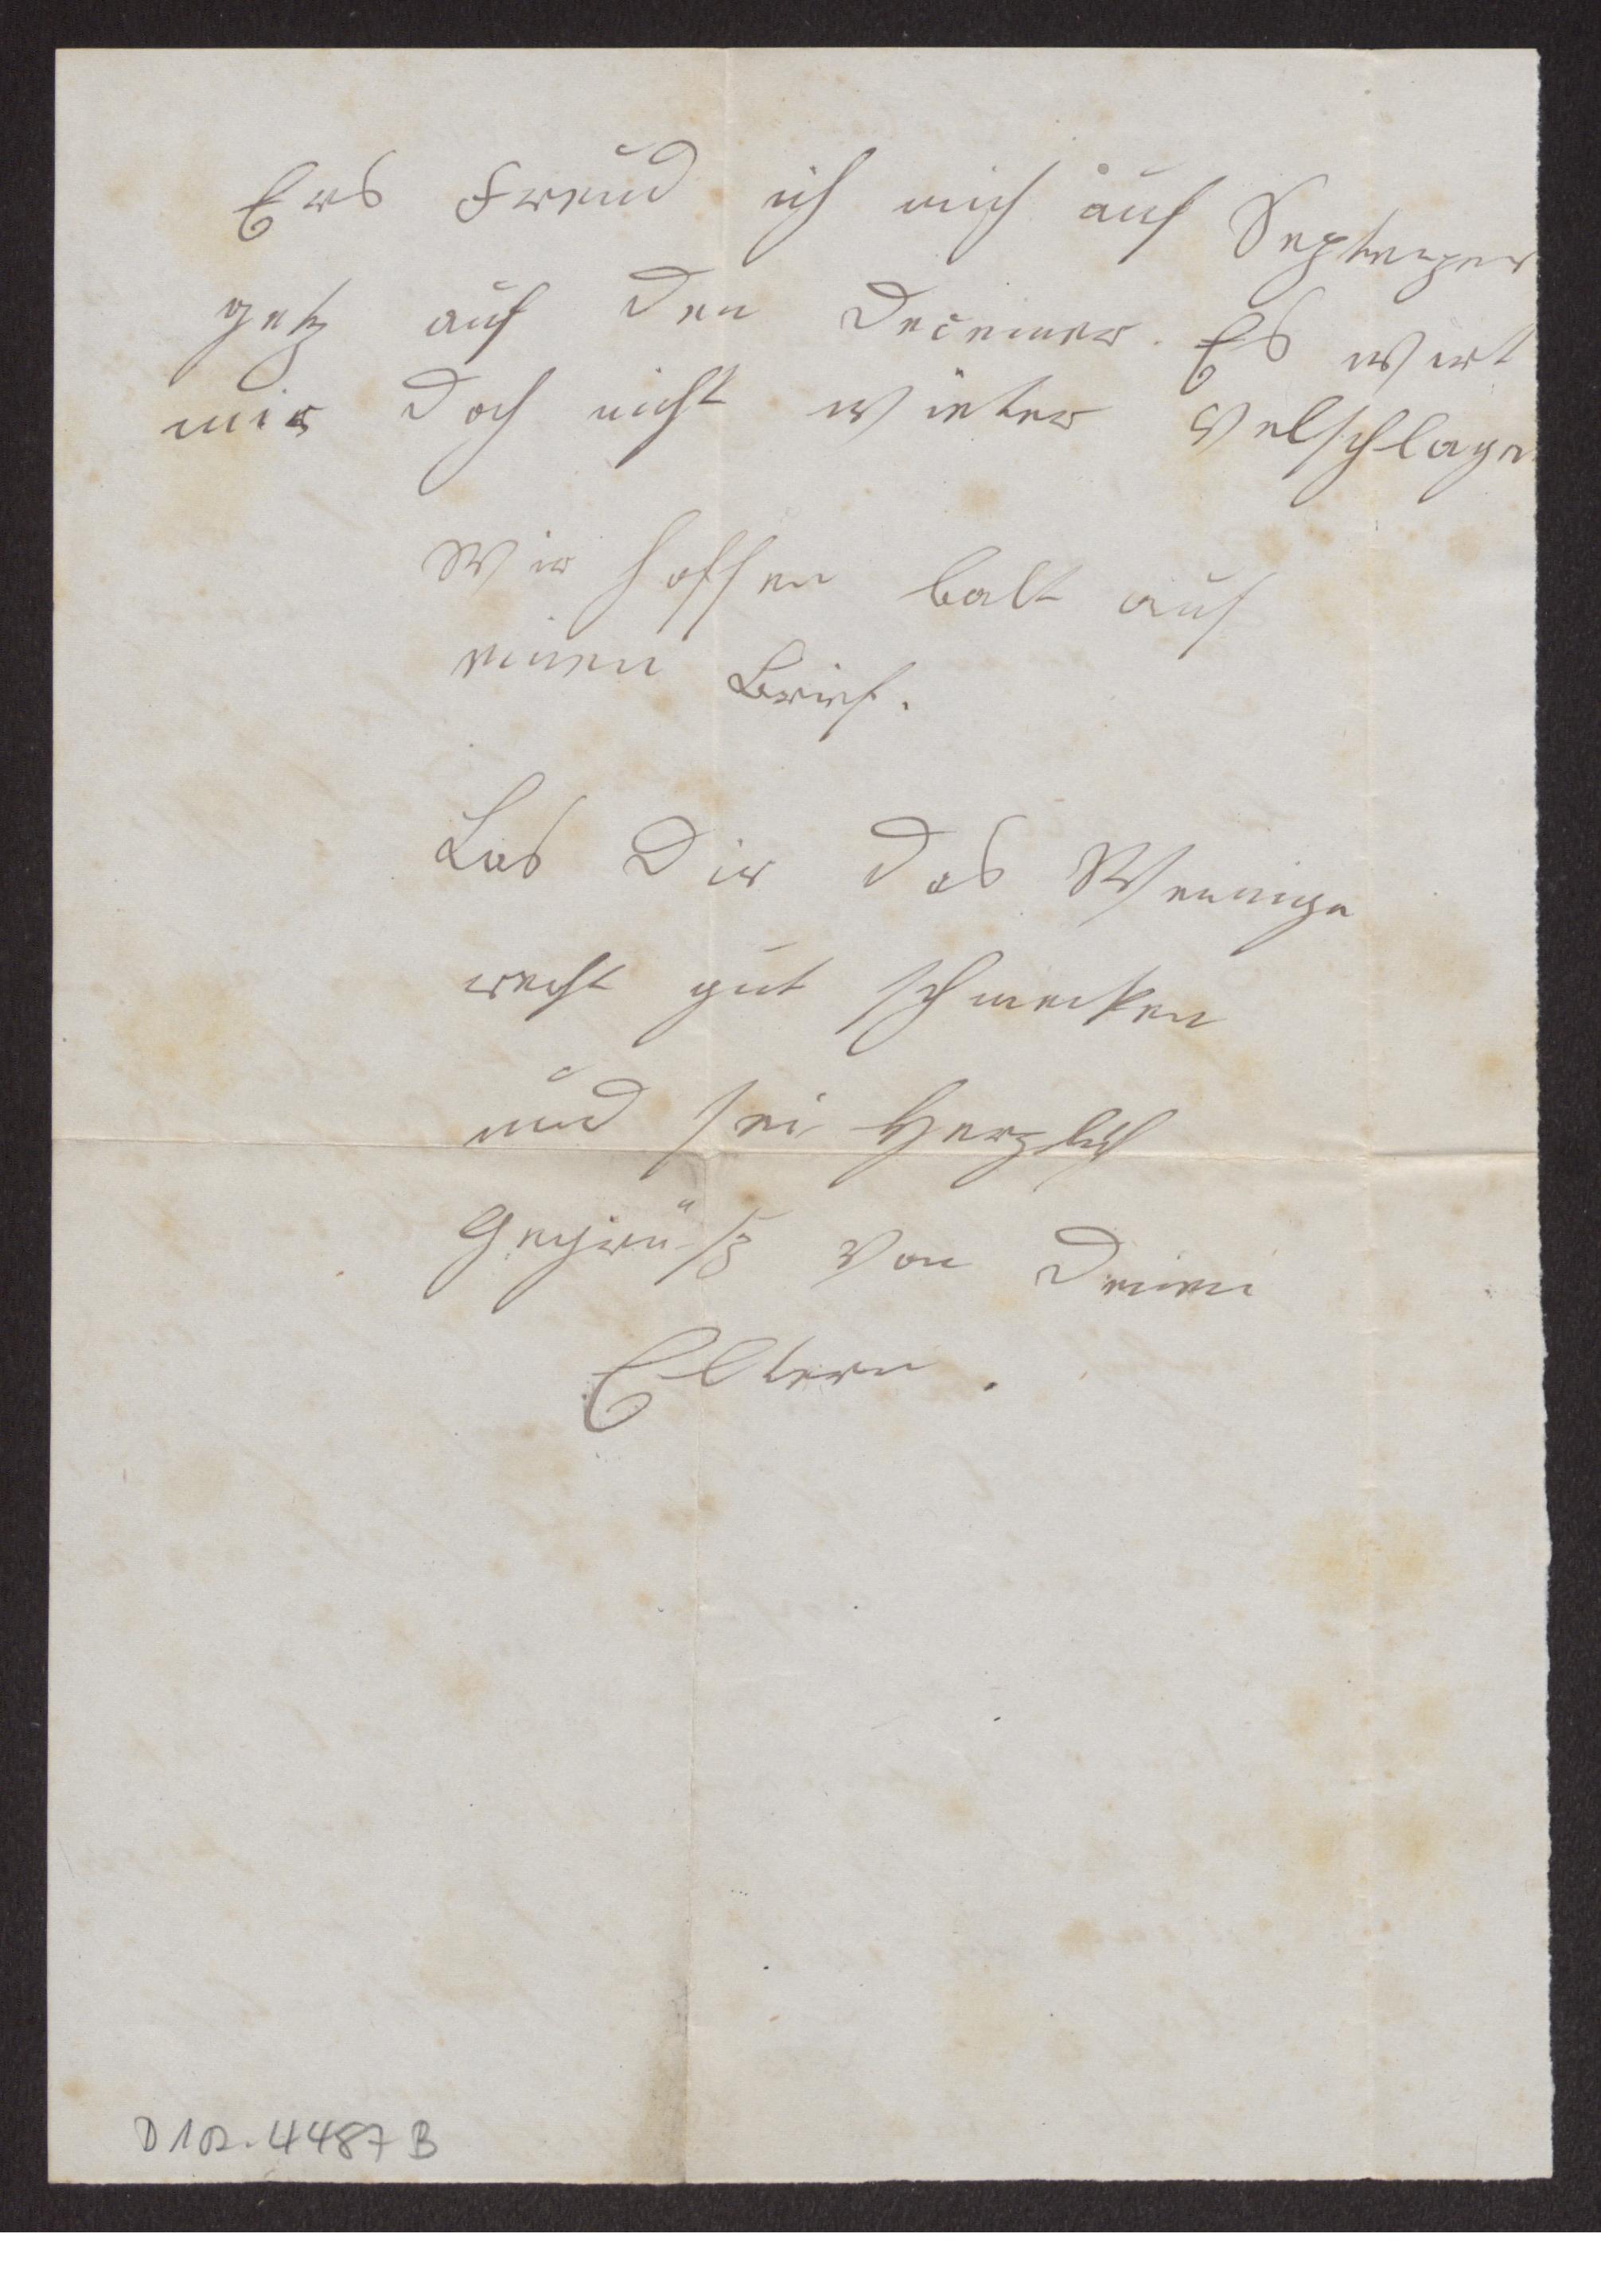 Ers Freud ich mich auf Septemper
getz auf den Decemer. Es wirt
mir doch nicht wieter velschlagen
Wir hoffen balt auf
einen Brief.
Las Dir das Wennige
recht gut schmecken
und sei Herzlich
Gegrüßt von Deinen
Eltern.
D 102.4487 B